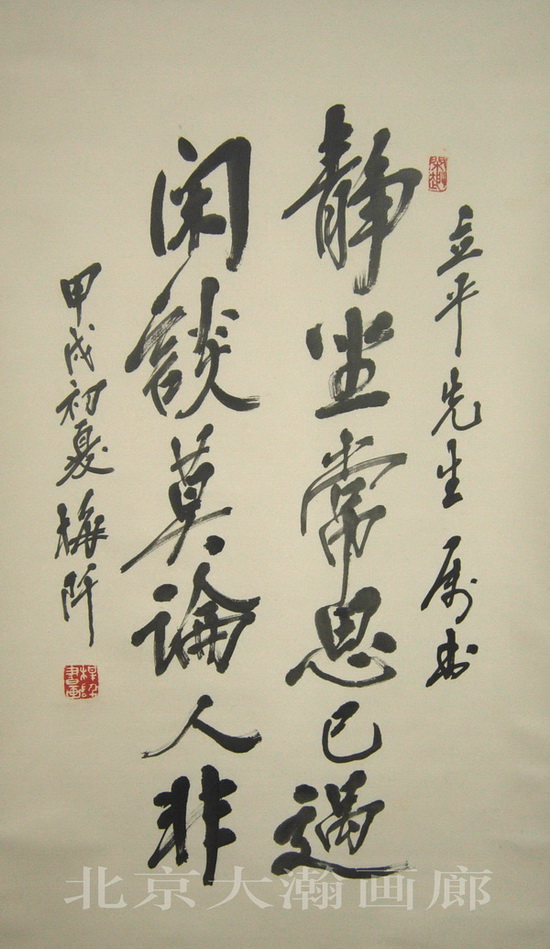 立平先生属书
静坐常思己過
闲談莫論人非
甲戌初夏梅阡
北京大瀚画廊